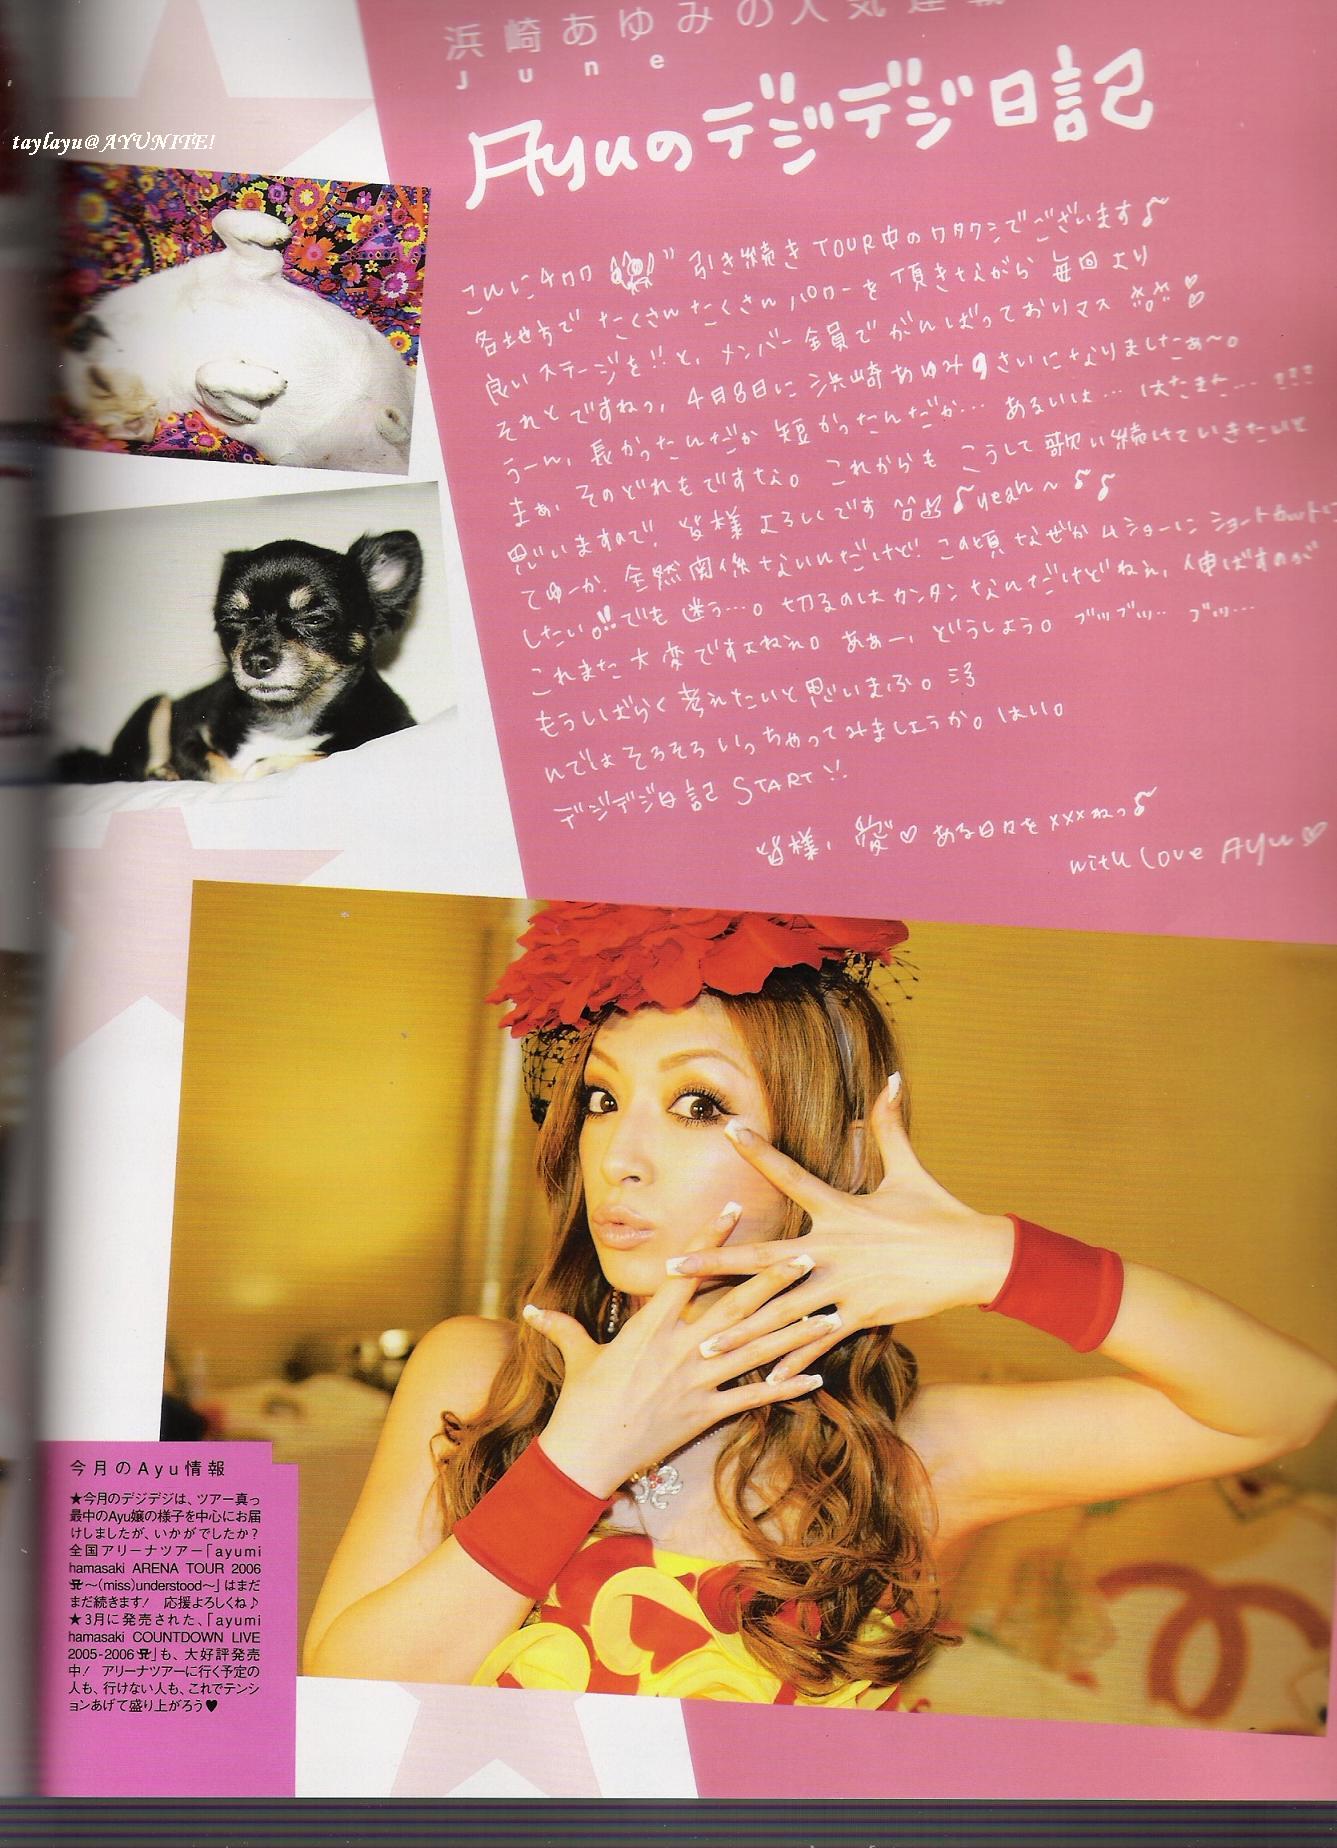 浜崎あゆみの人気連載
June
Ayuのデジデジ日記
taylayu@AYUNITE!
こんにチワワ 引き続きTOUR中のワタクシでございます♪
各地方でたくさんたくさんパワーを頂きながら毎回より
良いステージを!!と、メンバー全員でがんばっておりマス
それとですねっ、4月8日に浜崎あゆみ9さいになりましたぁ〜。
うーん、長かったんだか短かったんだか… あるいは… はたまた… !!!
まぁ、そのどれもですな。これからもこうして歌い続けていきたいと
思いますので、皆様よろしくです ♪yeah〜♪♪
てゆーか、全然関係ないんだけど、この頃なぜかムショーにショートカットに
したい。!!でも迷う…。切るのはカンタンなんだけどねぇ、伸ばすのが
これまた大変ですよねぇ。あぁー、どうしよう。ブツブツ… ブツ…
もうしばらく考えたいと思いまふ。
んではそろそろいっちゃってみましょうか。はい。
デジデジ日記 START!!
皆様、愛♡ある日々をxxxねっ♪
with love Ayu♡
今月のAyu情報
★今月のデジデジは、ツアー真っ
最中のAyu嬢の様子を中心にお届
けしましたが、いかがでしたか?
全国アリーナツアー「ayumi
hamasaki ARENA TOUR 2006
A〜(miss)understood〜」はまだ
まだ続きます! 応援よろしくね♪
★3月に発売された、「ayumi
hamasaki COUNTDOWN LIVE
2005-2006 A」も、大好評発売
中! アリーナツアーに行く予定の
人も、行けない人も、これでテンシ
ョンあげて盛り上がろう♥